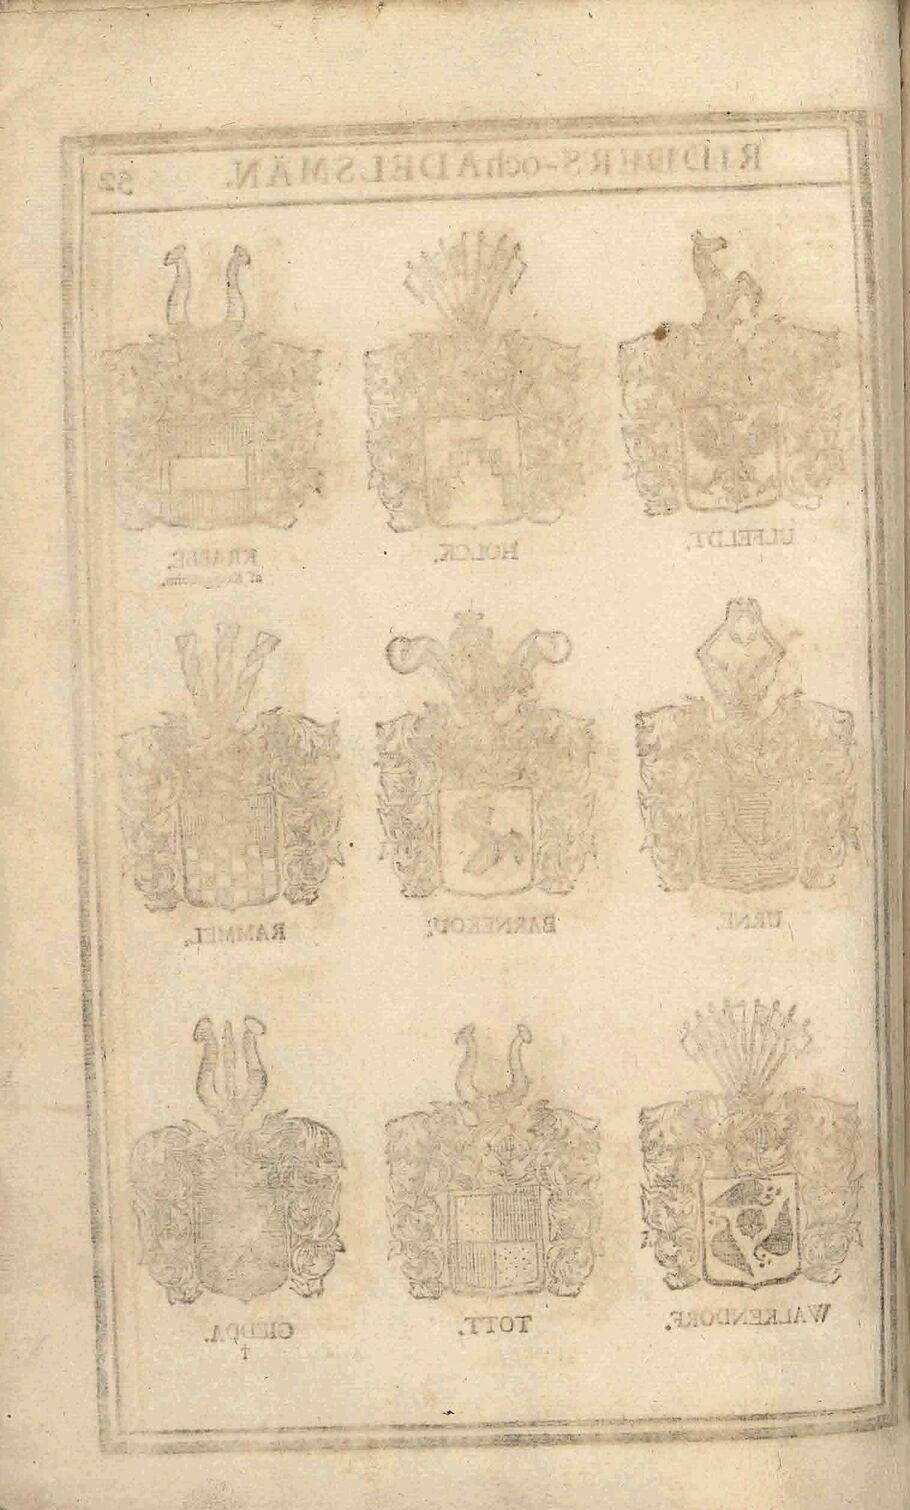 RIDDERS-och ADELSMÄN. 52
ULFELDT. HOLCK. KRABBE.
af
URNE. BARNEKOU. RAMMEL.
WALKENDORF. TOTT. GREDDA.
†